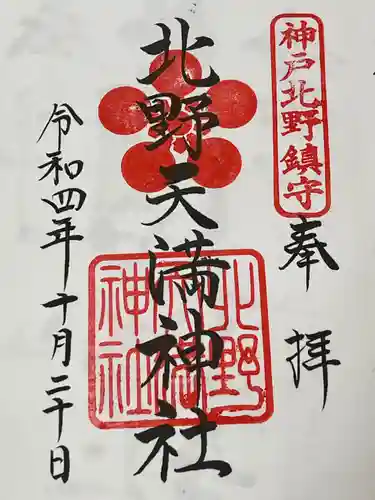 神戸北野鎮守
奉拝
北野天満神社
北野
天満
神社
令和四年十月二十日